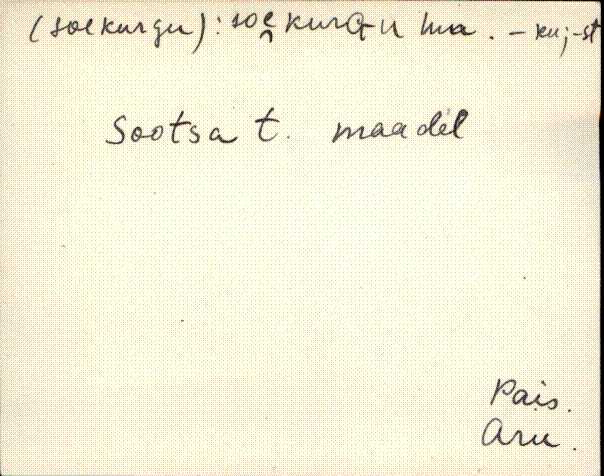 (soekurgu): soe̯kurGu ma. – kuj-st
Sootsa t. maadel
Pais.
Aru.